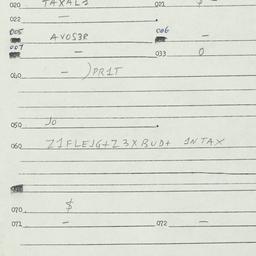 020 TAXAL3 021 $ -
022 —
005 AVOS3R 006 —
007 — 033 0
040 — )PR1T
050 Jo
060 Z1FLEJG+Z3XBUD+ 1NTAX
070 $
071 — 072 —